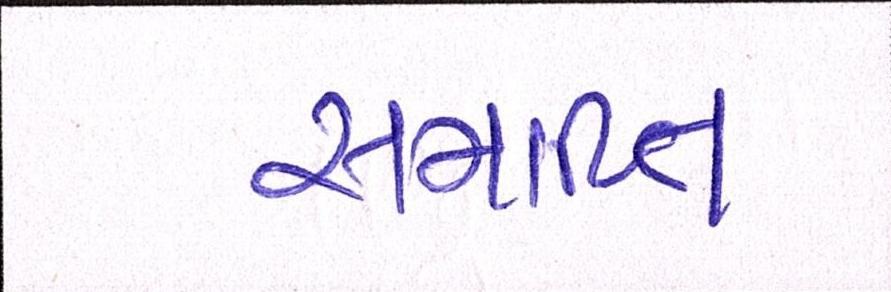 સમાપ્તિ